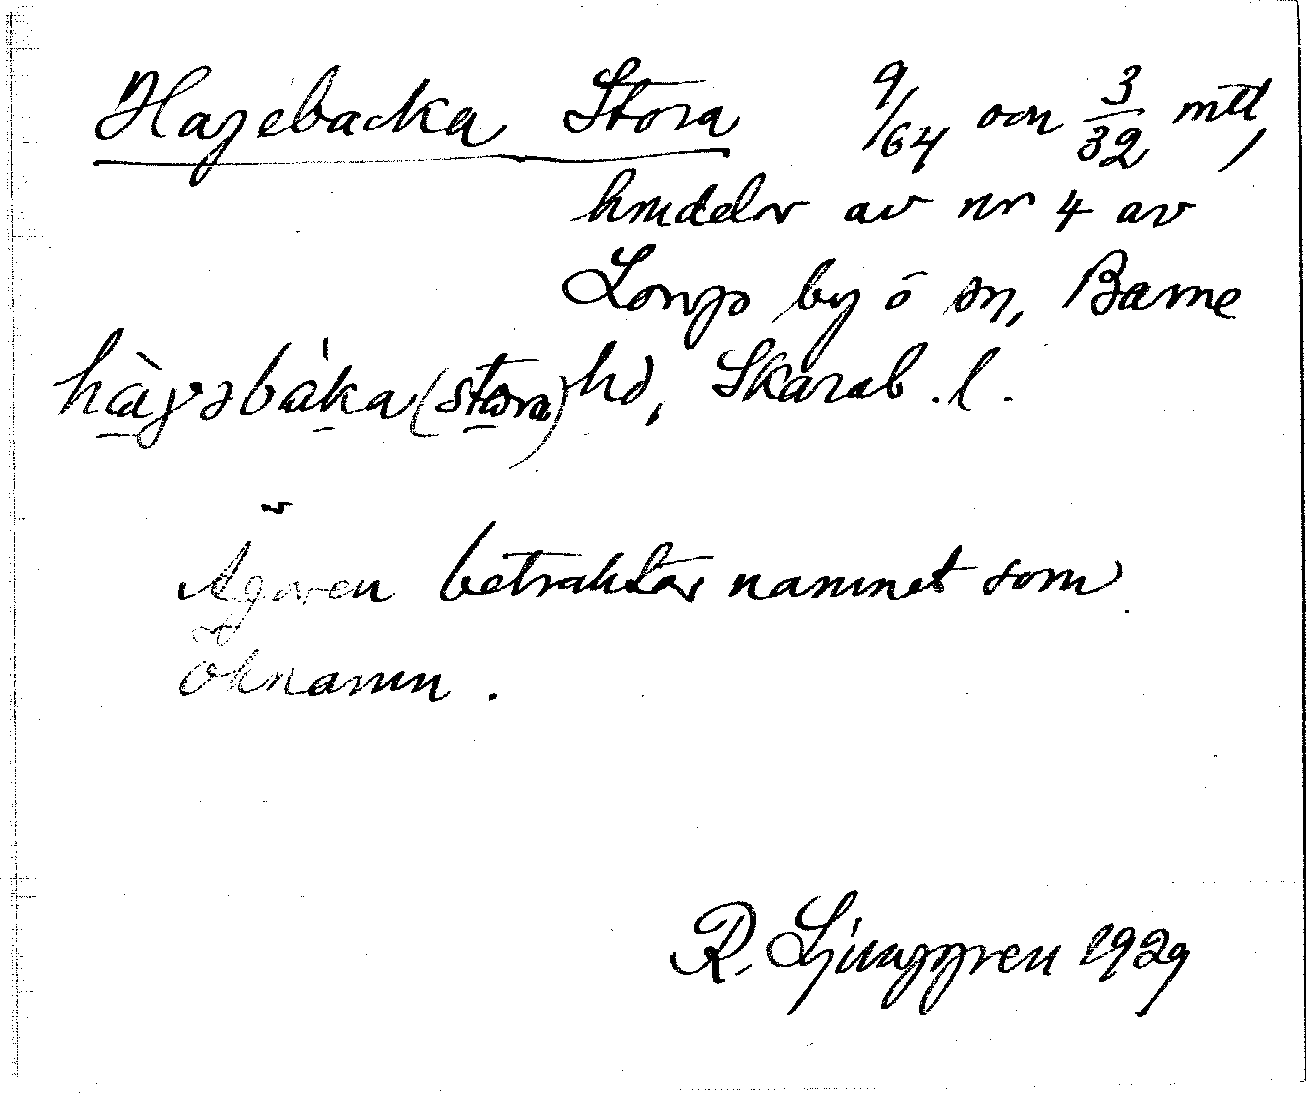 Hagebacka Stora 9/64 och 3/32 mtl,
hmdelar av nr 4 av
Longs by o sn, Barne
hàgəbáka (stora) hd, Skarab. l.
Ägaren betraktar namnet som
öknamn.
R. Ljunggren 1929